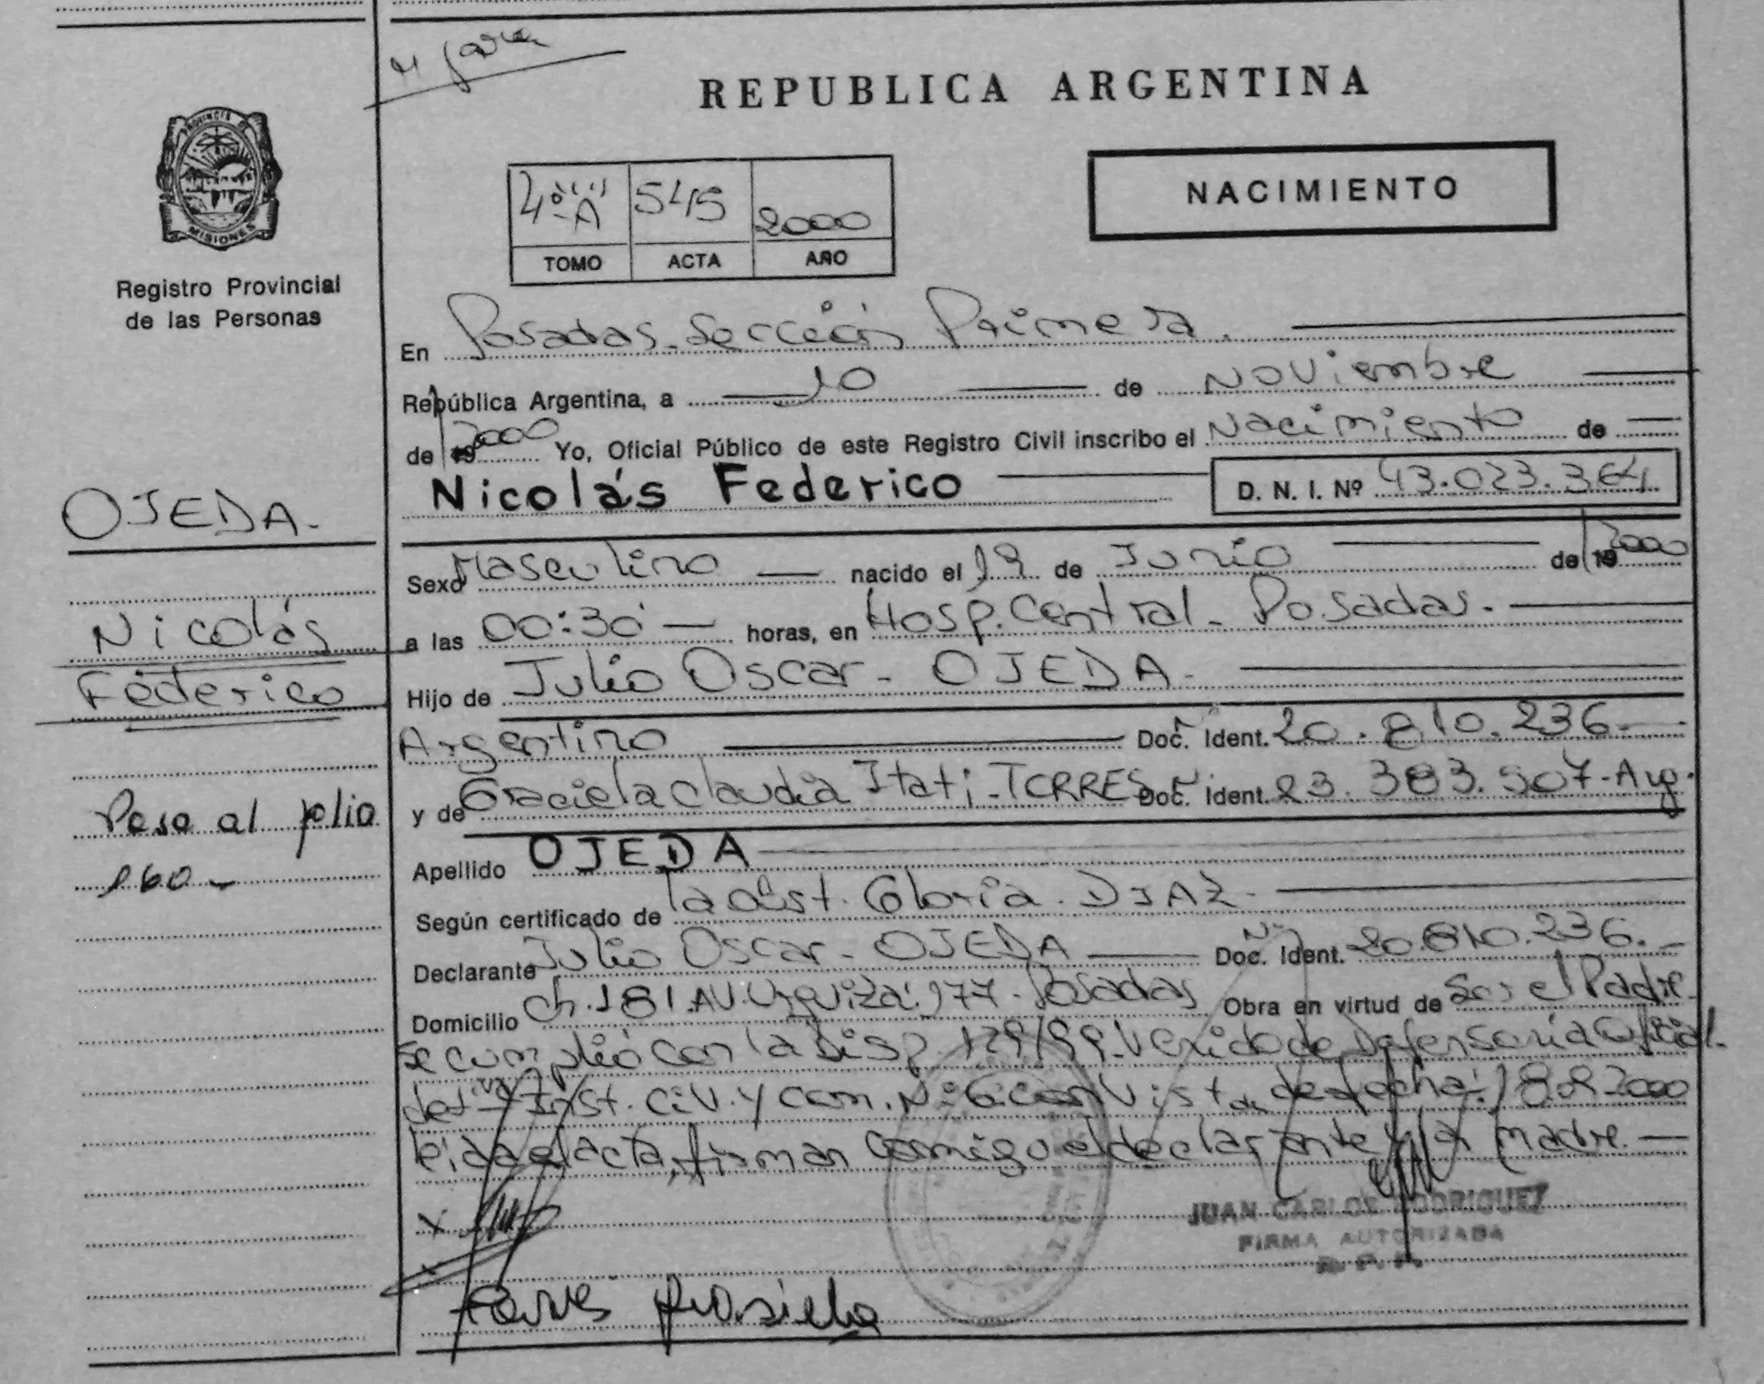 REPUBLICA ARGENTINA
PROVINCIA DE
MISIONES
Registro Provincial
de las Personas
4º "A" 545 2000
TOMO ACTA AÑO
NACIMIENTO
En Posadas. Sección Primera.
República Argentina, a 10 de Noviembre
de 19 2000 Yo, Oficial Público de este Registro Civil inscribo el Nacimiento de
Nicolás Federico
D. N. I. Nº 43.023.364
OJEDA.
Nicolás
Federico
Pasa al folio
160
Sexo Masculino nacido el 19 de Junio de 19 2000
a las 00:30 horas, en Hosp. Central - Posadas.
Hijo de Julio Oscar - OJEDA.
Argentino Doc. Ident. 20.810.236
y de Graciela Claudia Itati - TORRES Doc. Ident. 23.383.507 - Arg.
Apellido OJEDA
Según certificado de la Obst. Gloria. DIAZ.
Declarante Julio Oscar - OJEDA Doc. Ident. 20.810.236.
Domicilio Ch. 181. AV. Urquiza. 977 - Posadas Obra en virtud de Ser el Padre.
Se cumplió con la Disp. 129/99 de Defensoría Oficial
de Inst. Civ. y Com. Nº 6 con Vista de fecha: 2000
leida el acta, firman conmigo el declarante y la madre.
X
X
Torres Graciela
JUAN CARLOS RODRIGUEZ
FIRMA AUTORIZADA
R. P. P.